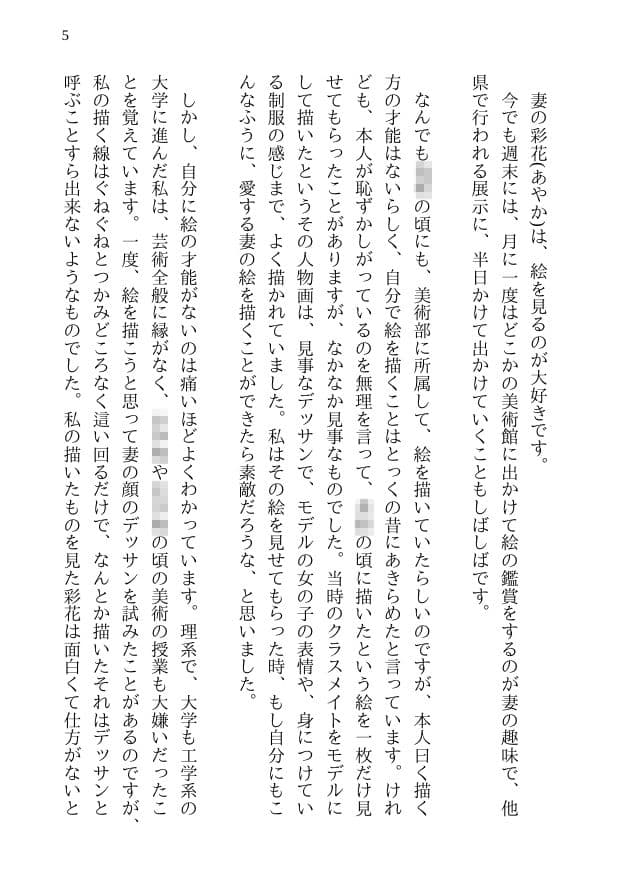 5
妻の彩花(あやか)は、絵を見るのが大好きです。
今でも週末には、月に一度はどこかの美術館に出かけて絵の鑑賞をするのが妻の趣味で、他
県で行われる展示に、半日かけて出かけていくこともしばしばです。
なんでもの頃にも、美術部に所属して、絵を描いていたらしいのですが、本人曰く描く
方の才能はないらしく、自分で絵を描くことはとっくの昔にあきらめたと言っています。けれ
ども、本人が恥ずかしがっているのを無理を言って、の頃に描いたという絵を一枚だけ見
せてもらったことがありますが、なかなか見事なものでした。当時のクラスメイトをモデルに
して描いたというその人物画は、見事なデッサンで、モデルの女の子の表情や、身につけてい
る制服の感じまで、よく描かれていました。私はその絵を見せてもらった時、もし自分にもこ
んなふうに、愛する妻の絵を描くことができたら素敵だろうな、と思いました。
しかし、自分に絵の才能がないのは痛いほどよくわかっています。理系で、大学も工学系の
大学に進んだ私は、芸術全般に縁がなく、やの頃の美術の授業も大嫌いだったこ
とを覚えています。一度、絵を描こうと思って妻の顔のデッサンを試みたことがあるのですが、
私の描く線はぐねぐねとつかみどころなく這い回るだけで、なんとか描いたそれはデッサンと
呼ぶことすら出来ないようなものでした。私の描いたものを見た彩花は面白くて仕方がないと